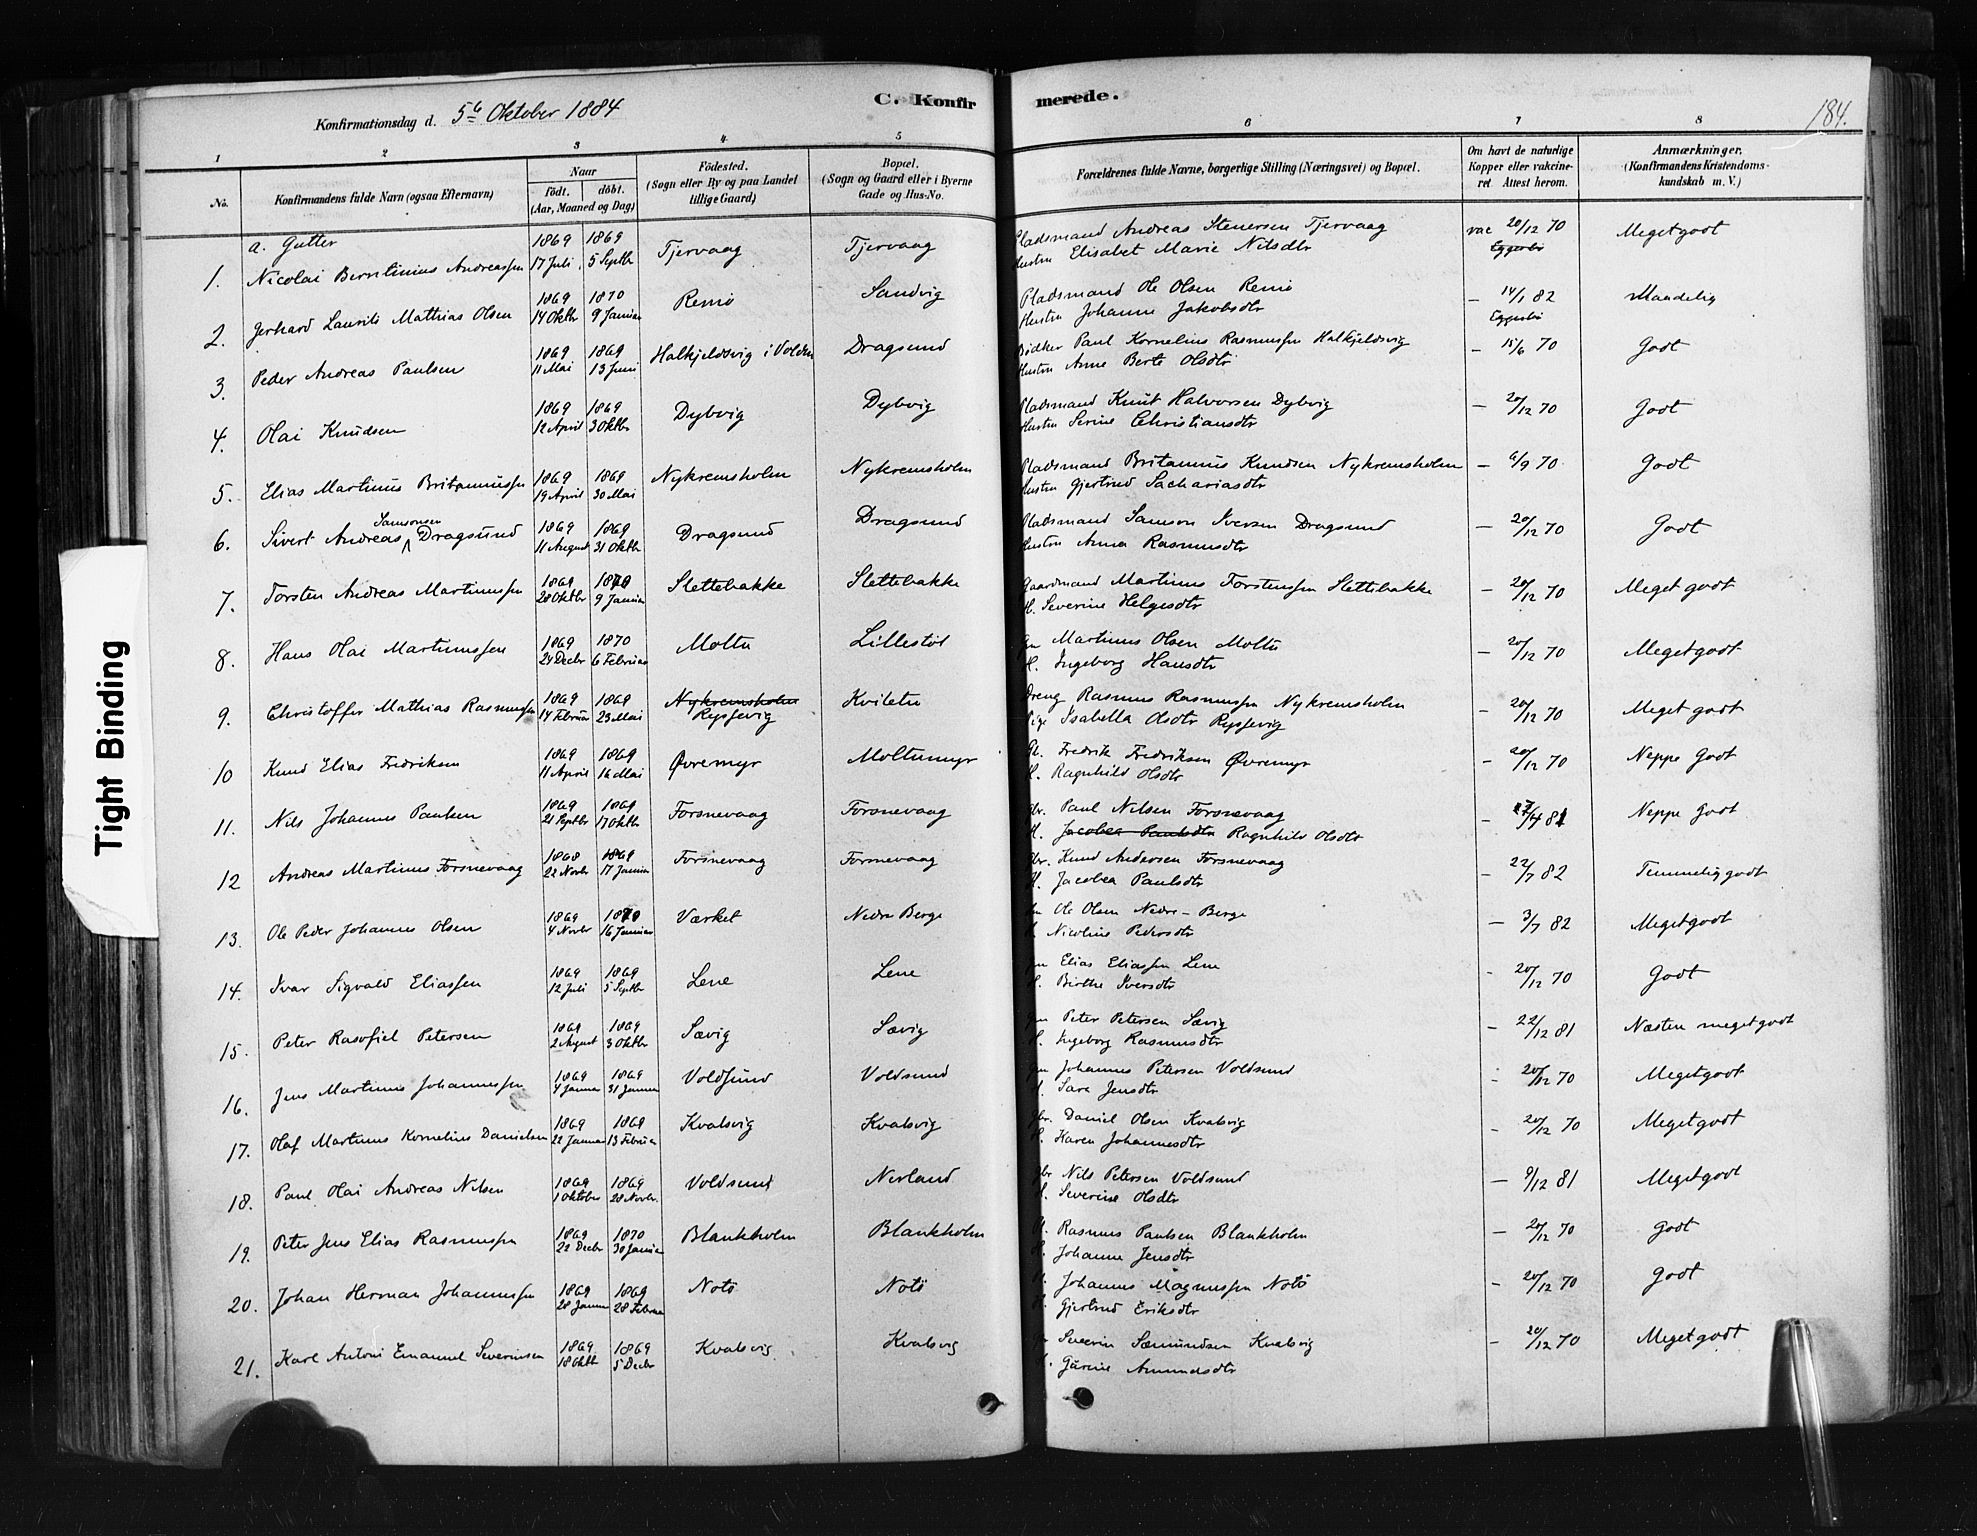 Tight Binding
Konfirmationsdag d. 5te Oktober 1884
C. Konfirmerede.
184.
1 2 3 4 5 6 7 8
No.
Konfirmandens fulde Navn (ogsaa Efternavn)
Naar
födt. döbt.
(Aar, Maaned og Dag)
Födested.
(Sogn eller By og paa Landet
tillige Gaard)
Bopæl.
(Sogn og Gaard eller i Byerne
Gade og Hus-No.
Forældrenes fulde Navne, borgerlige Stilling (Næringsvei) og Bopæl.
Om havt de naturlige
Kopper eller vakcine-
ret. Attest herom.
Anmærkninger.
(Konfirmandens Kristendoms-
kundskab m. V.)
a. Gutter
1. Nicolai Berntinius Andreassen 1869 17 Juli 1869 5 Septbr Tjervaag Tjervaag Pladsmand Andreas Stenersen Tjervaag vac 20/12 70 Meget godt
Hustru Elisabet Marie Nilsdtr
2. Gerhard Laurits Mathias Olsen 1869 14 Oktbr 1870 9 Januar Remö Sandvig Pladsmand Ole Olsen Remö – 14/1 82 Maadelig
Hustru Johanne Jakobsdtr
3. Peder Andreas Paulsen 1869 11 Mai 1869 13 Juni Halkjeldsvig i Volden Dragsund Bødker Paul Kornelius Rasmussen Halkjeldsvig – 15/6 70 Godt
Hustru Anne Berte Olsdtr
4. Olai Knudsen 1869 12 April 1869 3 Oktbr Dybvig Dybvig Pladsmand Knut Halvorsen Dybvig – 20/12 70 Godt
Hustru Serine Christiansdtr
5. Elias Martinus Britanniussen 1869 19 April 1869 30 Mai Nykremsholm Nykremsholm Pladsmand Britannius Knudsen Nykremsholm – 6/9 70 Godt
Hustru Gjertrud Sachariasdtr
6. Sivert Andreas Samsonsen Dragsund 1869 11 August 1869 31 Oktbr Dragsund Dragsund Pladsmand Samson Iversen Dragsund – 20/12 70 Godt
Hustru Anna Rasmusdtr
7. Torsten Andreas Martinussen 1869 28 Oktbr 1870 9 Januar Slettebakke Slettebakke Gaardmand Martinus Torstensen Slettebakke – 20/12 70 Meget godt
H. Severine Helgesdtr
8. Hans Olai Martinussen 1869 24 Decbr 1870 6 Februar Moltu Lillestöl Gm Martinus Olsen Moltu – 20/12 70 Meget godt
H. Ingeborg Hansdtr
9. Christoffer Mathias Rasmussen 1869 14 Februar 1869 23 Mai Nykremsholm Kviletu Dreng Rasmus Rasmussen Nykremsholm – 20/12 70 Meget godt
Rypsevig Pige Isabella Olsdtr Rypsevig
10 Knud Elias Fredriksen 1869 11 April 1869 16 Mai Øvremyr Moltumyr Pl. Fredrik Fredriksen Øvremyr – 20/12 70 Neppe Godt
H. Ragnhild Olsdtr
11. Nils Johannes Paulsen 1869 21 Septbr 1869 17 Oktbr Forsnevaag Forsnevaag Gbr. Paul Nilsen Forsnevaag – 27/4 81 Neppe Godt
H. Jacobea Paulsdtr Ragnhild Olsdtr
12 Andreas Martinus Forsnevaag 1868 22 Novbr 1869 17 Januar Forsnevaag Forsnevaag Gbr. Knud Andersen Forsnevaag – 22/7 82 Temmelig godt
H. Jacobea Paulsdtr
13. Ole Peder Johannes Olsen 1869 4 Novbr 1870 16 Januar Værket Nedre Berge Gm Ole Olsen Nedre-Berge – 3/7 82 Meget godt
H. Nicoline Pedersdtr
14. Ivar Sigvald Eliassen 1869 12 Juli 1869 5 Septbr Lene Lene Gm Elias Eliassen Lene – 20/12 70 Godt
H. Birthe Iversdtr
15. Peter Rasofiel Petersen 1869 2 August 1869 3 Oktbr Sævig Sævig Gm Peter Petersen Sævig – 22/12 81 Næsten meget godt
H. Ingeborg Rasmusdtr
16. Jens Martinus Johannessen 1869 4 Januar 1869 31 Januar Voldsund Voldsund Gm Johannes Petersen Voldsund – 20/12 70 Meget godt
H. Sara Jensdtr
17. Olaf Martinus Kornelius Danielsen 1869 22 Januar 1869 13 Februar Kvalsvig Kvalsvig Gbr. Daniel Olsen Kvalsvig – 20/12 70 Meget godt
H. Karen Johannesdtr
18. Paul Olai Andreas Nilsen 1869 1 Oktober 1869 28 Novbr. Voldsund Nerland Gbr Nils Petersen Voldsund – 9/12 81 Meget godt
H. Severine Olsdtr
19. Peter Jens Elias Rasmussen 1869 22 Decbr 1870 30 Januar Blankholm Blankholm Pl. Rasmus Paulsen Blankholm – 20/12 70 Godt
H. Johanne Jensdtr
20. Johan Herman Johannessen 1869 28 Januar 1869 28 Februar Notö Notö Pl. Johannes Magnussen Notö – 20/12 70 Godt
H. Gjertrud Eriksdtr
21. Karl Antoni Emanuel Severinsen 1869 18 Oktbr 1869 5 Decbr Kvalsvig Kvalsvig Gm Severin Sæmundsen Kvalsvig – 20/12 70 Meget godt
H. Gurine Amundsdtr